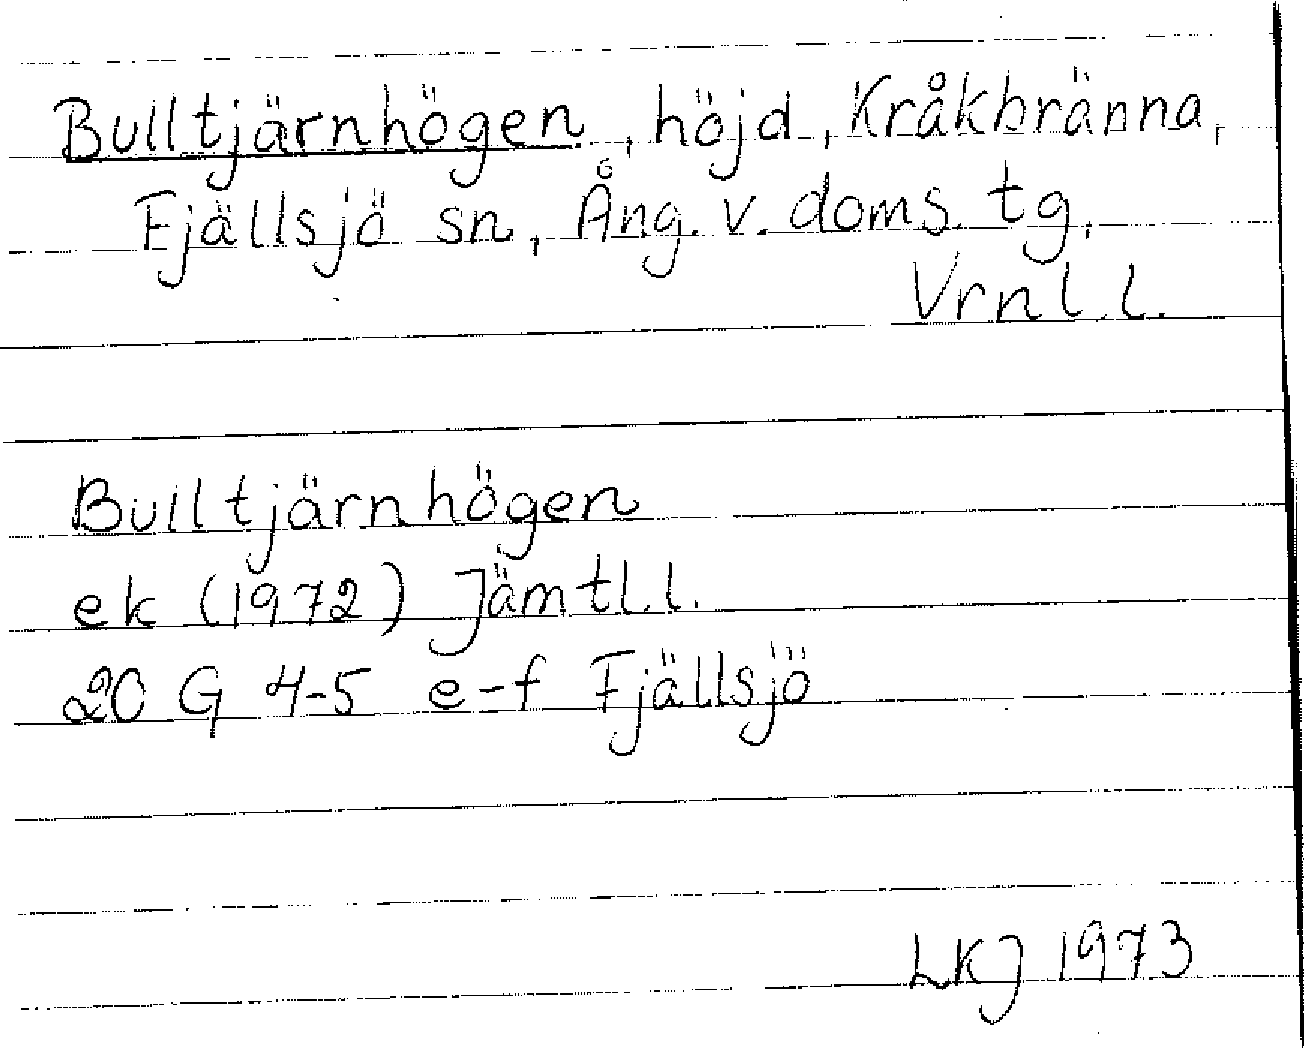 Bulltjärnhögen, höjd, Kråkbränna,
Fjällsjö sn, Ång. v. doms. tg,
Vrnl. l.
Bulltjärnhögen
ek (1972) Jämtl. l.
20 G 4-5 e-f Fjällsjö
LKJ 1973